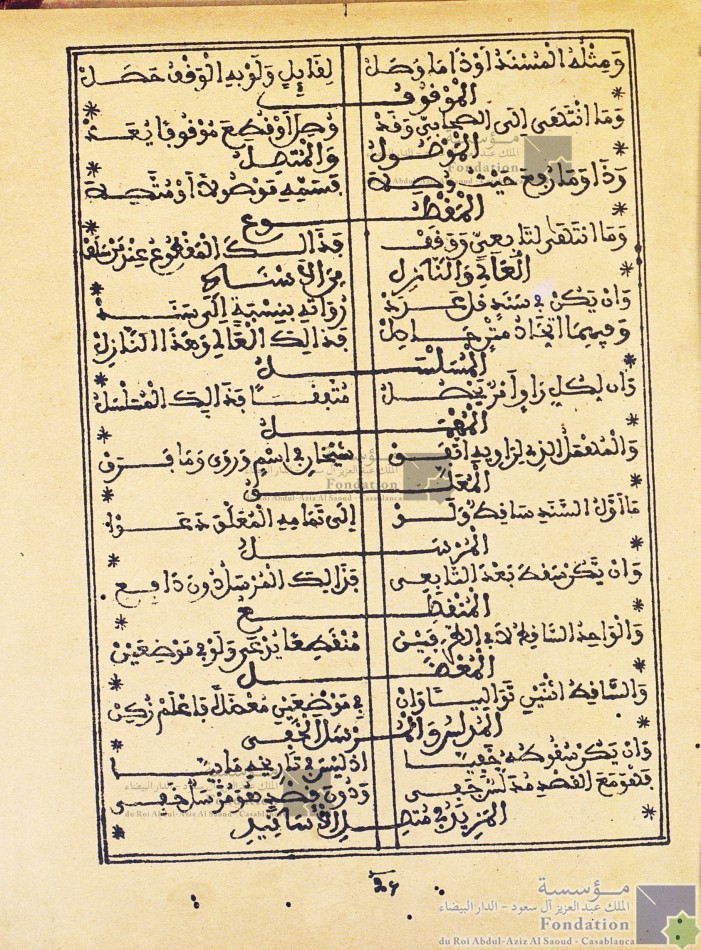 وَمِثْلُهُ الْمُسْنَدُ أَوْ ذَا مَا وَصَلْ لِقَائِلٍ وَلَوْ بِهِ الْوَقْفُ حَصَلْ
الْمَوْقُوفُ
وَمَا انْتَهَى إِلَى الصَّحَابِيِّ وَقَدْ وُصِلَ أَوْ قُطِعَ مَوْقُوفًا يُعَدْ
الْمَوْصُولُ وَالْمُتَّصِلُ
وَذَا وَمَا رُفِعَ حَيْثُ وُصِلَهْ فَسَمِّهِ مَوْصُولًا أَوْ مُتَّصِلَهْ
الْمَقْطُوعُ
وَمَا انْتَهَى لِتَابِعِيٍّ وَوَقَفْ فَذَالِكَ الْمَقْطُوعُ عِنْدَ مَنْ سَلَفْ
الْعَالِي وَالنَّازِلُ مِنَ الْإِسْنَادِ
وَإِنْ يَكُنْ فِي سَنَدٍ قَلَّ عَدَدْ رُوَاتِهِ بِنِسْبَةٍ إِلَى سَنَدْ
وَفِيهِمَا اتِّحَادُ مَتْنٍ حَاصِلُ فَذَالِكَ الْعَالِي وَهَذَا النَّازِلُ
الْمُسَلْسَلُ
وَإِنْ لِكُلِّ رَاوٍ أَمْرٌ يَحْصُلُ مُتَّفِقًا فَذَالِكَ الْمُسَلْسَلُ
الْمُهْمَلُ
وَالْمُهْمَلُ الَّذِي لِرَاوِيهِ اتَّفَقْ شَيْخَانِ فِي اسْمٍ وَرَوَى وَمَا فَرَقْ
الْمُعَلَّقُ
مَا أَوَّلُ السَّنَدِ سَاقِطٌ وَلَوْ إِلَى تَمَامِهِ الْمُعَلَّقَ دَعَوْا
الْمُرْسَلُ
وَإِنْ يَكُنْ سَقَطَ بَعْدَ التَّابِعِي فَذَالِكَ الْمُرْسَلُ دُونَ دَافِعِ
الْمُنْقَطِعُ
وَالْوَاحِدُ السَّاقِطُ لَا فِي الطَّرَفَيْنْ مُنْقَطِعًا يُدْعَى وَلَوْ فِي مَوْضِعَيْنْ
الْمُعْضَلُ
وَالسَّاقِطُ اثْنَيْنِ تَوَالِيًا وَإِنْ فِي مَوْضِعَيْنِ مُعْضَلًا فَاعْلَمْ زُكِنْ
الْمُدَلَّسُ وَالْمُرْسَلُ الْخَفِي
وَإِنْ يَكُنْ سُقُوطُهُ خَفِيًّا إِذْ لَيْسَ فِي تَارِيخِهِ
فَهْوَ مَعَ الْقَصْدِ مُدَلَّسٌ خَفِي وَدُونَ قَصْدٍ فَهْوَ مُرْسَلٌ خَفِي
الْمَزِيدُ فِي مُتَّصِلِ الْأَسَانِيدِ
26
مؤسسة
الملك عبد العزيز آل سعود - الدار البيضاء
Fondation
du Roi Abdul-Aziz Al Saoud - Casablanca